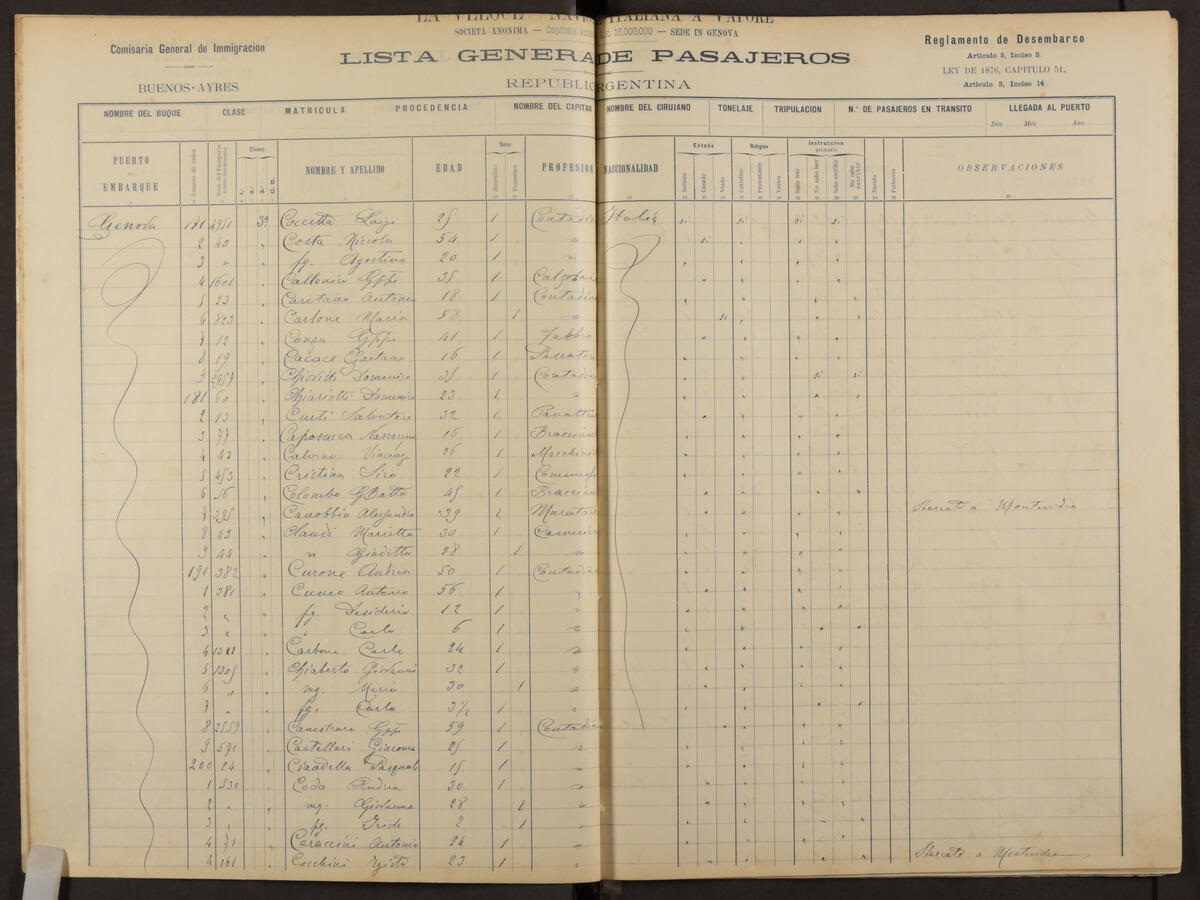 LA VELOCE NAVI ITALIANA A VAPORE
SOCIETÀ ANONIMA — Capitale 15,000,000 — SEDE IN GENOVA
Comisaria General de Immigracion
BUENOS-AYRES
LISTA GENERA DE PASAJEROS
REPUBLIC RGENTINA
Reglamento de Desembarco
Articulo 5, Inciso 3.
LEY DE 1876, CAPITULO 51,
Articulo 3, Inciso 14
NOMBRE DEL BUQUE CLASE MATRICULA PROCEDENCIA NOMBRE DEL CAPITAN NOMBRE DEL CIRUJANO TONELAJE TRIPULACION N.° DE PASAJEROS EN TRANSITO LLEGADA AL PUERTO
Dia Mes Ano
PUERTO EMBARQUE Clases NOMBRE Y APELLIDO EDAD Sexo Masculino Femenino PROFESION NACCIONALIDAD Estado Soltero Casado Viudo Religion Cattolico Protestante Varios Instruccion primaria Sabe leer No sabe leer Sabe escribir No sabe escribir Nacido Fallecido OBSERVACIONES
Genova 181 4951 3a Coccetta Luigi 25 1 Contadin Italia si si si si
2 40 Costa Niccola 54 1 "
3 " fg. Agostino 20 1 "
4 1601 35 1 Calzolai
5 23 Caritano Antonio 18 1 Contadin
6 823 Carbone Maria 58 1 " si
7 12 Conza Gppe 41 1 Fabbro
8 19 Cacace Gaetano 16 1
9 2957 Chiovetti Domenico 35 1 Contadin si si
181 60 Chiariotti Domenico 23 1 "
2 13 Curti Salvatore 32 1 Panatti
3 77 Caposucca Nazzareno 16 1 Braccian
4 43 Calvino Vincenzo 26 1 Macchini
5 453 Cristina Siro 22 1
6 56 Colombo GBatta 45 1 Braccian
7 295 Canobbio Alejandro 39 1 Murator Sbarcato a Montevideo
8 43 Claudi Marietta 30 1
9 44 " Giuditta 28 1 "
190 382 Curone Andrea 50 1 Contadin
1 381 Cuneo Antonio 56 1 "
2 " fg. Desiderio 12 1 "
3 " " Carlo 6 1 "
4 Carbone Carlo 24 1 "
5 1305 Chiaberto Giovanni 32 1 "
6 " mg. Maria 30 1 "
7 " fg. Carlo 3 1/2 1 "
8 2559 Canestraro Gppe 59 1 Contadin
9 591 Castellari Giacomo 25 1 "
200 24 Ciaadella Pasquale 15 1 "
1 530 Coda Andrea 30 1 "
2 " mg. Giovanna 28 1 "
3 " fg. Iride 2 1 "
4 71 Caraccini Antonio 24 1 "
4 161 Cecchini Egisto 23 1 " Sbarcato a Montevideo